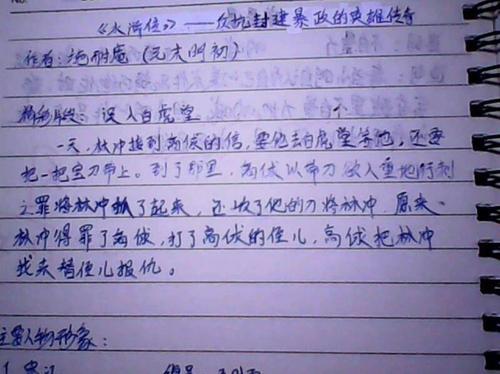 《水浒传》——反抗封建暴政的英雄传奇
作者：施耐庵（元末明初）
精彩片段：误入白虎堂
一天，林冲接到高俅的信，要他去白虎堂等他，还要
把一把宝刀带上。到了那里，高俅以带刀欲入重地行刺
之罪将林冲抓了起来，还收了他的刀将林冲 原来
林冲得罪了高俅，打了高俅的侄儿，高俅把林冲
找来替侄儿报仇。
主要人物形象：
1. 宋江